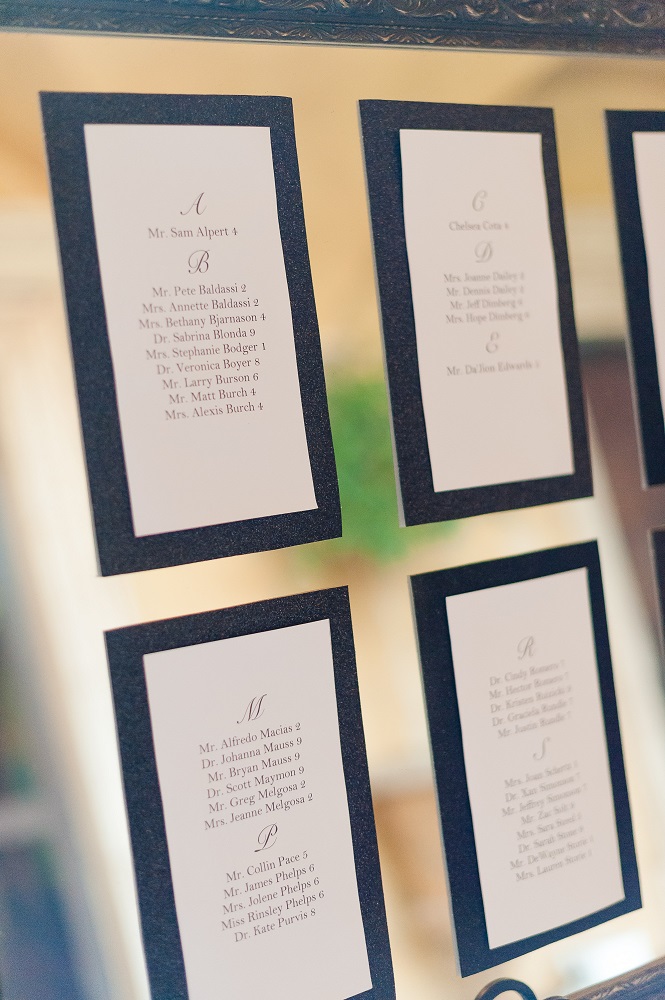 A
Mr. Sam Alpert 4
B
Mr. Pete Baldassi 2
Mrs. Annette Baldassi 2
Mrs. Bethany Bjarnason 4
Dr. Sabrina Blonda 9
Mrs. Stephanie Bodger 1
Dr. Veronica Boyer 8
Mr. Larry Burson 6
Mr. Matt Burch 4
Mrs. Alexis Burch 4
C
Chelsea Cota
D
Mrs. Joanne Dailey
Mr. Dennis Dailey
Mr. Jeff Dimberg
Mrs. Hope Dimberg
E
Mr. Da'Jion Edwards
M
Mr. Alfredo Macias 2
Dr. Johanna Mauss 9
Mr. Bryan Mauss 9
Dr. Scott Maymon 9
Mr. Greg Melgosa 2
Mrs. Jeanne Melgosa 2
P
Mr. Collin Pace 5
Mr. James Phelps 6
Mrs. Jolene Phelps 6
Miss Rinsley Phelps 6
Dr. Kate Purvis 8
R
Dr. Cindy Romero 7
Mr. Hector Romero 7
Dr. Kristen
Dr. Graciela Rundle 7
Mr. Justin Rundle 7
S
Mrs. Joan
Dr. Kat Simonson 7
Mr. Jeffrey Simonson 7
Mr. Zac
Mrs. Sara
Dr. Sarah
Mr. DeWayne Storie 1
Mrs. Lauren Storie 1